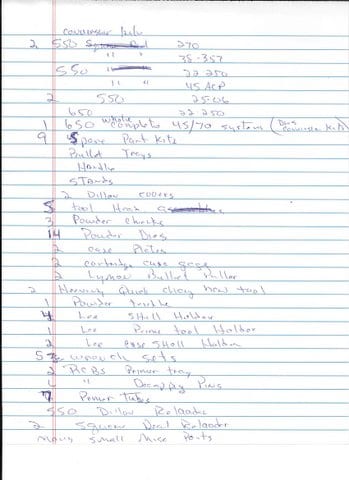 conversion kits
2 550 Square Deal 270
" " 35-357
550 22 250
" " 45 ACP
2 550 25-06
650 22-250
1 650 whole complete 45/70 system (Plus conversion kits)
9 Spare Part Kits
Bullet Trays
Handle
STANDS
2 Dillon covers
5 Tool Head
3 Powder checks
14 Powder Dies
2 case Plates
2 cartridge case gage
2 Lyman Bullet Puller
2 Hornady Quick chang new tool
1 Powder
4 Lee Shell Holder
1 Lee Prime tool Holder
2 Lee case Shell Holder
5 wrench sets
2 RCBS Primer tray
1 " Decapping Pins
7 Primer Tubes
550 Dillon Reloader
2 Square Deal Reloader
many small misc Parts